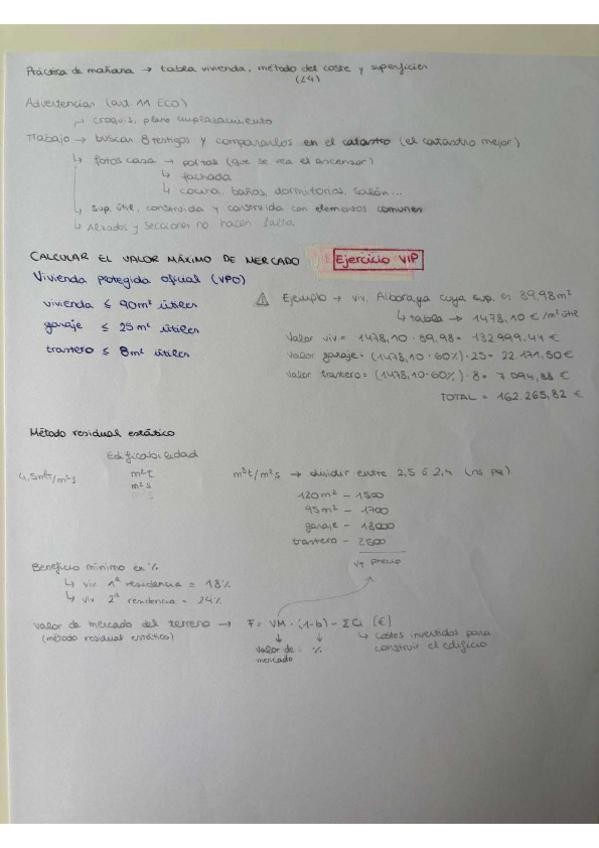 Práctica de mañana → tabla vivienda, método del coste y superficies
(L4)
Advertencias (art. 11 ECO)
↳ croquis, plano emplazamiento
Trabajo → buscar 8 testigos y compararlos en el catastro (el catastro mejor)
↳ fotos casa → patios (que se vea el ascensor)
↳ fachada
↳ cocina, baños, dormitorios, salón...
↳ sup. útil, construida y construida con elementos comunes
↳ Alzados y secciones no hacen falta
CALCULAR EL VALOR MÁXIMO DE MERCADO Ejercicio VIP
Vivienda protegida oficial (VPO)
vivienda ≤ 90m² útiles
garaje ≤ 25 m² útiles
trastero ≤ 8m² útiles
⚠ Ejemplo → viv. Alboraya cuya sup. es 89,98m²
↳ tabla → 1478,10 €/m² útil
Valor viv = 1478,10 · 89,98 = 132 999,44 €
Valor garaje = (1478,10 · 60%) · 25 = 22 171,50 €
Valor trastero = (1478,10 · 60%) · 8 = 7 094,88 €
TOTAL = 162.265,82 €
Método residual estático
Edificabilidad
4,5m²t/m²s
m²t
m²s
m²s
m²t/m²s → dividir entre 2,5 ó 2,4 (ns pq)
120m² - 1500
95m² - 1700
garaje - 18000
trastero - 2500
↳ precio
Beneficio mínimo en %
↳ viv. 1ª residencia = 18%
↳ viv 2ª residencia = 24%
Valor de mercado del terreno → F = VM · (1-b) - ΣCi [€]
(método residual estático)
Valor de mercado
%
↳ costes invertidos para construir el edificio